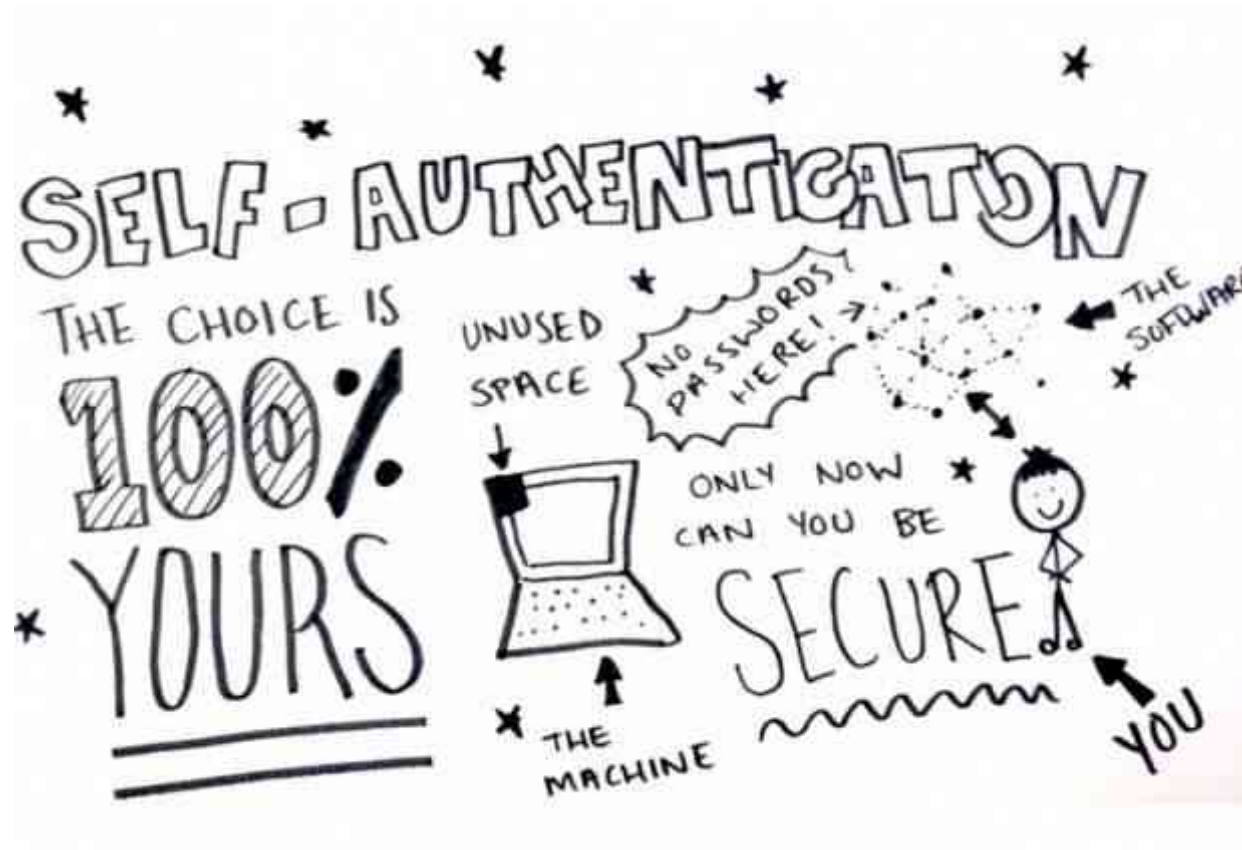 SELF-AUTHENTICATION
THE CHOICE IS
100%
YOURS
UNUSED
SPACE
THE
MACHINE
NO
PASSWORDS
HERE!
THE
SOFTWARE
ONLY NOW
CAN YOU BE
SECURE
YOU